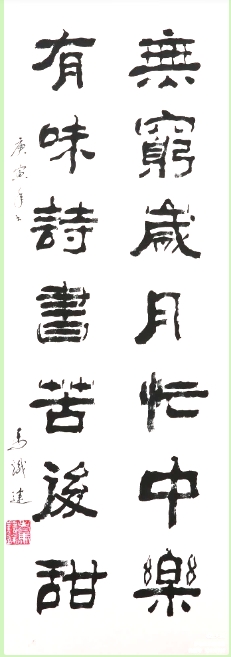 無窮歲月忙中樂
有味詩書苦後甜
庚寅年